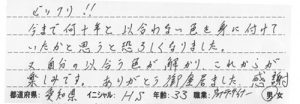 ビックリ!!
今まで何十年と似合わない色を身に付けて
いたかと思うと恐ろしくなりました。
又、自分の似合う色が解かり、これからが
楽しみです。ありがとう御座居ました。感謝
都道府県: 愛知県 イニシャル: H S 年齢: 33 職業: 男/女